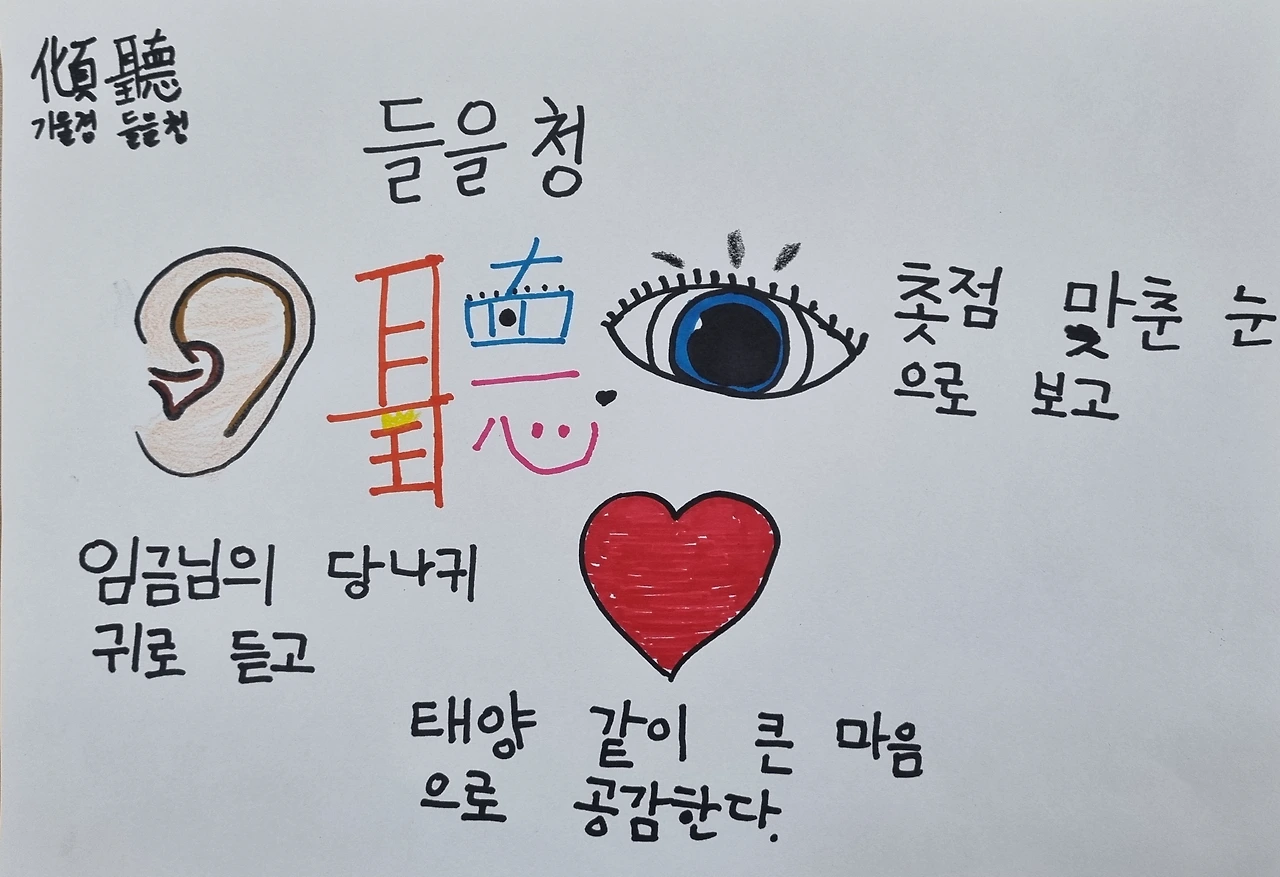 傾聽
기울경 들을청
들을 청
聽
촛점 맞춘 눈
으로 보고
임금님의 당나귀
귀로 듣고
태양 같이 큰 마음
으로 공감한다.